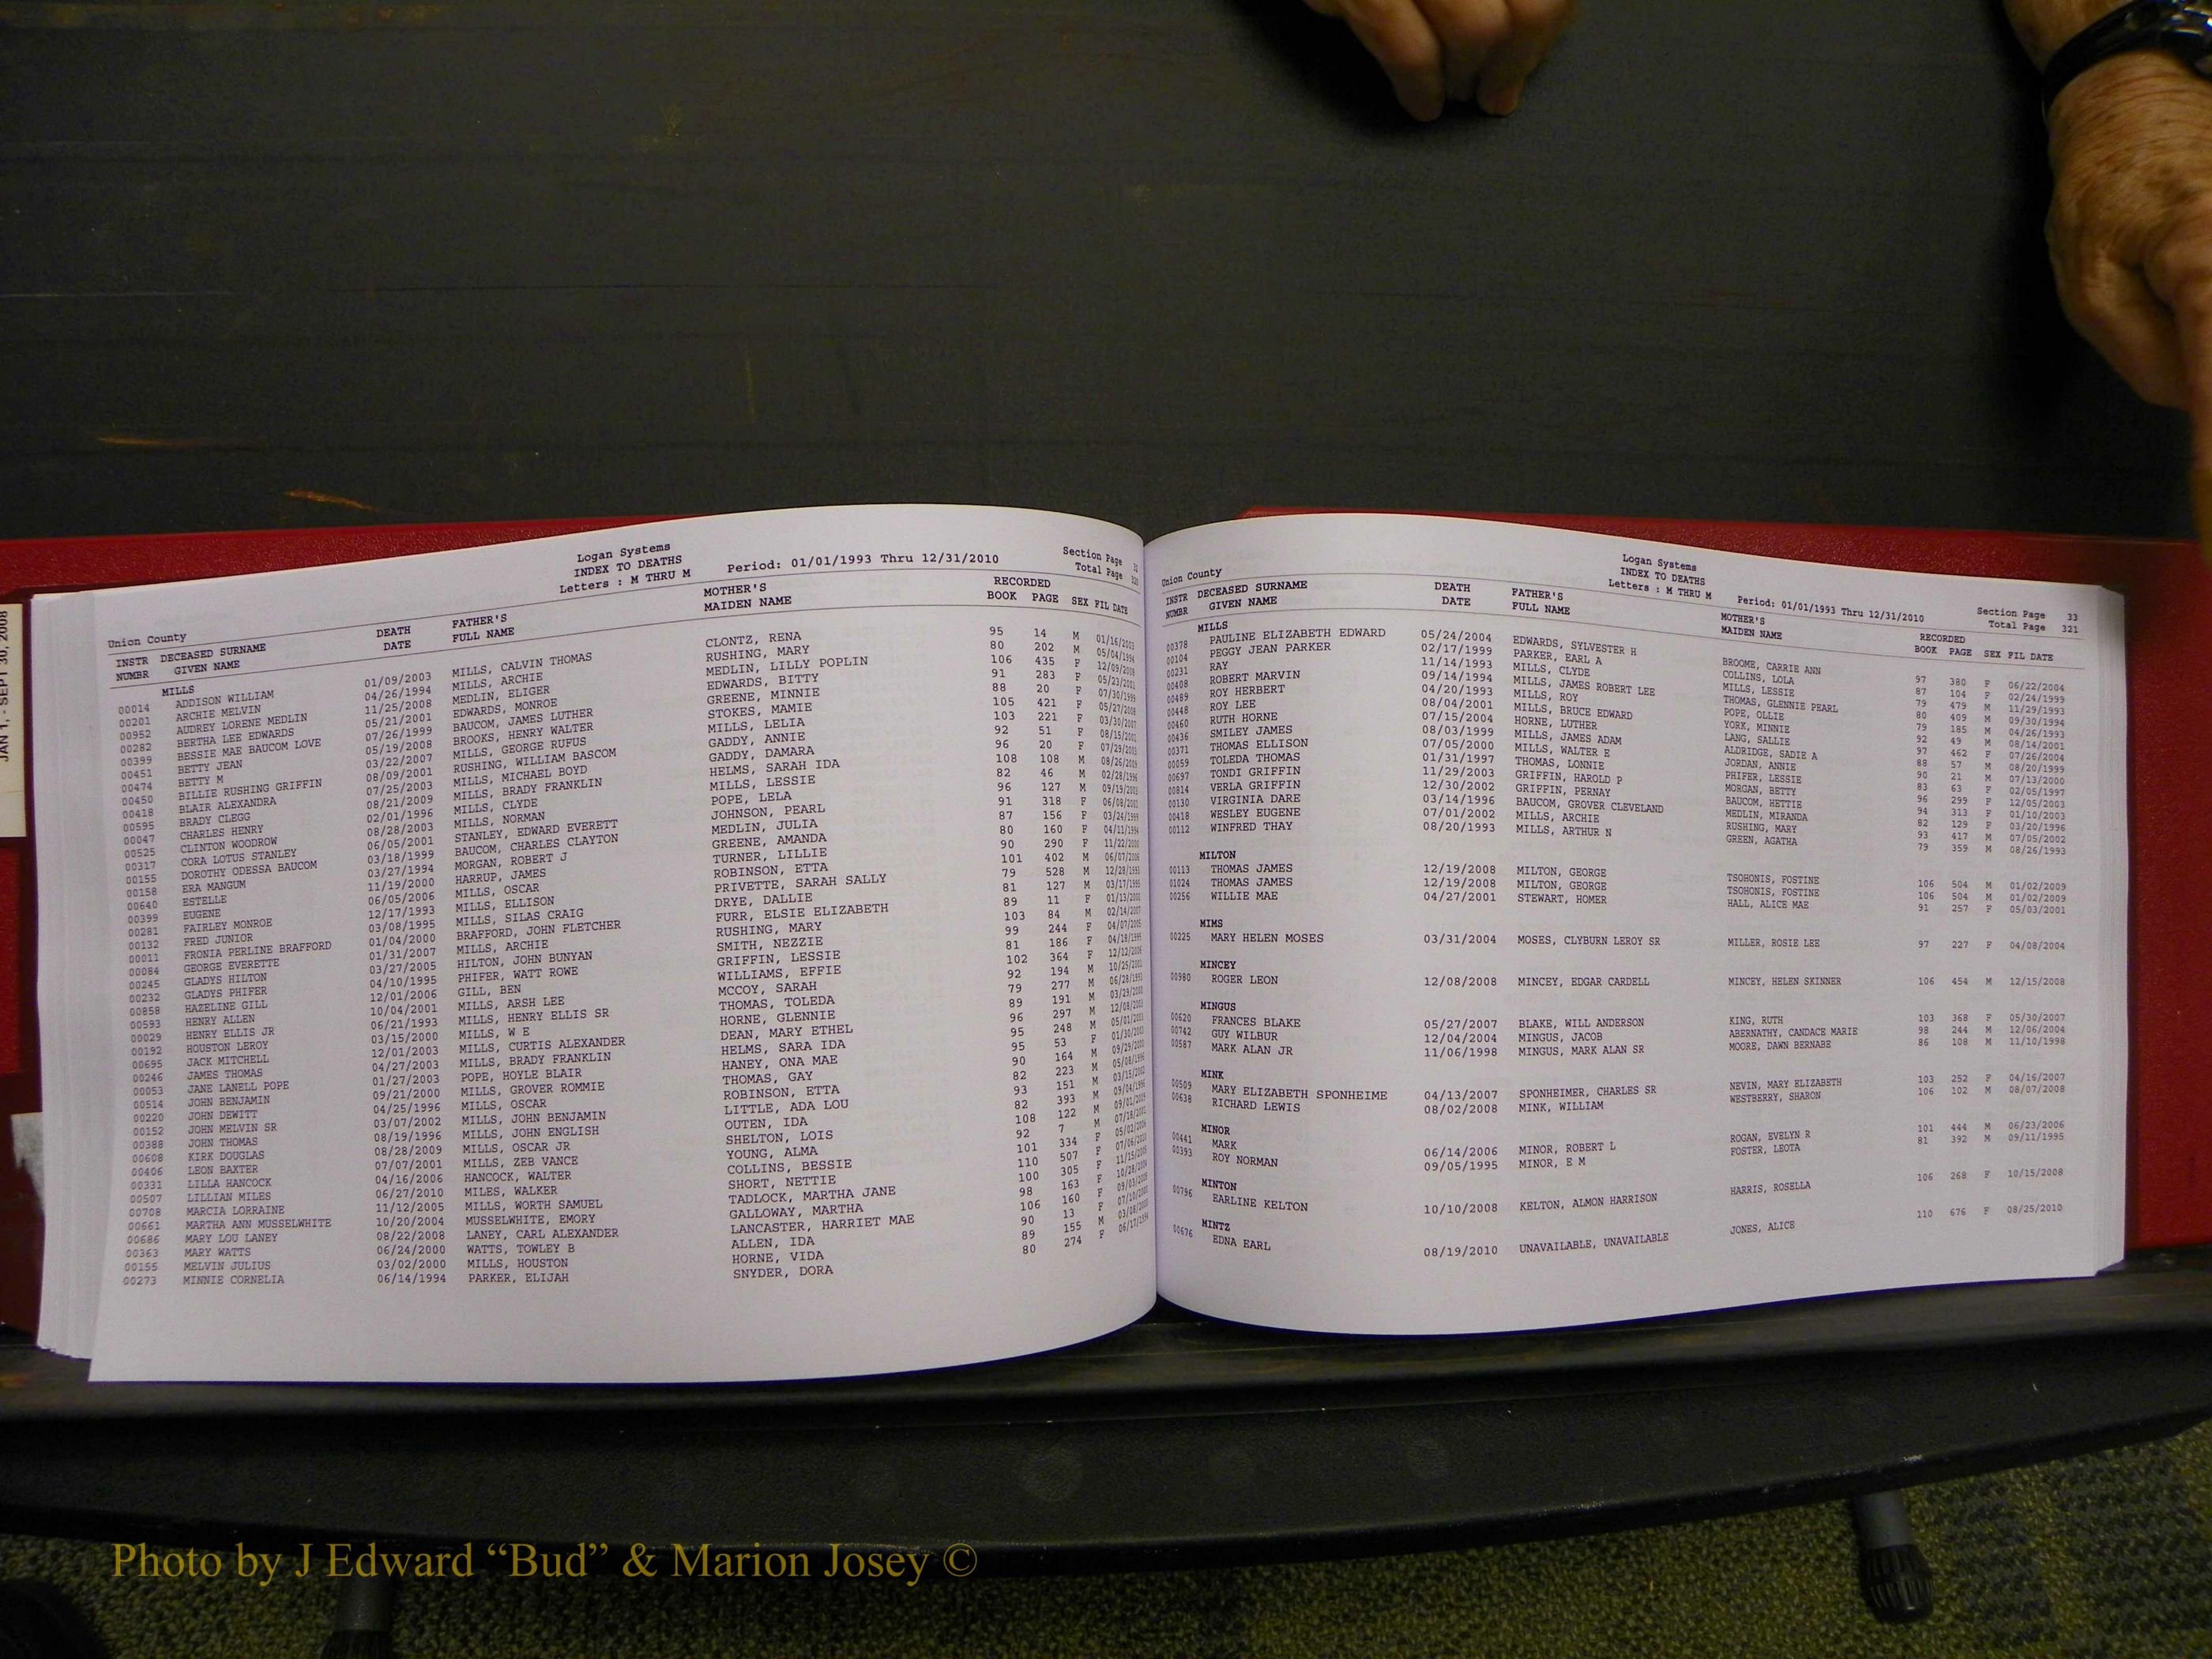 JAN 1, - SEPT 30, 2008
Logan Systems
INDEX TO DEATHS
Letters : M THRU M Period: 01/01/1993 Thru 12/31/2010
Section Page
Total Page
Union County
INSTR DECEASED SURNAME DEATH FATHER'S MOTHER'S RECORDED
NUMBR GIVEN NAME DATE FULL NAME MAIDEN NAME BOOK PAGE SEX FIL DATE
MILLS
00014 ADDISON WILLIAM 01/09/2003 MILLS, CALVIN THOMAS CLONTZ, RENA 95 14 M 01/16/2003
00201 ARCHIE MELVIN 04/26/1994 MILLS, ARCHIE RUSHING, MARY 80 202 M 05/04/1994
00952 AUDREY LORENE MEDLIN 11/25/2008 MEDLIN, ELIGER MEDLIN, LILLY POPLIN 106 435 F 12/09/2008
00282 BERTHA LEE EDWARDS 05/21/2001 EDWARDS, MONROE EDWARDS, BITTY 91 283 F 05/23/2001
00399 BESSIE MAE BAUCOM LOVE 07/26/1999 BAUCOM, JAMES LUTHER GREENE, MINNIE 88 20 F 07/30/1999
00451 BETTY JEAN 05/19/2008 BROOKS, HENRY WALTER STOKES, MAMIE 105 421 F 05/27/2008
00474 BETTY M 03/22/2007 MILLS, GEORGE RUFUS MILLS, LELIA 103 221 F 03/30/2007
00450 BILLIE RUSHING GRIFFIN 08/09/2001 RUSHING, WILLIAM BASCOM GADDY, ANNIE 92 51 F 08/15/2001
00418 BLAIR ALEXANDRA 07/25/2003 MILLS, MICHAEL BOYD GADDY, DAMARA 96 20 F 07/29/2003
00595 BRADY CLEGG 08/21/2009 MILLS, BRADY FRANKLIN HELMS, SARAH IDA 108 108 M 08/26/2009
00047 CHARLES HENRY 02/01/1996 MILLS, CLYDE MILLS, LESSIE 82 46 M 02/28/1996
00525 CLINTON WOODROW 08/28/2003 MILLS, NORMAN POPE, LELA 96 127 M 09/19/2003
00317 CORA LOTUS STANLEY 06/05/2001 STANLEY, EDWARD EVERETT JOHNSON, PEARL 91 318 F 06/08/2001
00155 DOROTHY ODESSA BAUCOM 03/18/1999 BAUCOM, CHARLES CLAYTON MEDLIN, JULIA 87 156 F 03/24/1999
00158 ERA MANGUM 03/27/1994 MORGAN, ROBERT J GREENE, AMANDA 80 160 F 04/11/1994
00640 ESTELLE 11/19/2000 HARRUP, JAMES TURNER, LILLIE 90 290 F 11/22/2000
00399 EUGENE 06/05/2006 MILLS, OSCAR ROBINSON, ETTA 101 402 M 06/07/2006
00281 FAIRLEY MONROE 12/17/1993 MILLS, ELLISON PRIVETTE, SARAH SALLY 79 528 M 12/28/1993
00132 FRED JUNIOR 03/08/1995 MILLS, SILAS CRAIG DRYE, DALLIE 81 127 M 03/17/1995
00011 FRONIA PERLINE BRAFFORD 01/04/2000 BRAFFORD, JOHN FLETCHER FURR, ELSIE ELIZABETH 89 11 F 01/13/2000
00084 GEORGE EVERETTE 01/31/2007 MILLS, ARCHIE RUSHING, MARY 103 84 M 02/14/2007
00245 GLADYS HILTON 03/27/2005 HILTON, JOHN BUNYAN SMITH, NEZZIE 99 244 F 04/07/2005
00232 GLADYS PHIFER 04/10/1995 PHIFER, WATT ROWE GRIFFIN, LESSIE 81 186 F 04/18/1995
00858 HAZELINE GILL 12/01/2006 GILL, BEN WILLIAMS, EFFIE 102 364 F 12/12/2006
00593 HENRY ALLEN 10/04/2001 MILLS, ARSH LEE MCCOY, SARAH 92 194 M 10/25/2001
00029 HENRY ELLIS JR 06/21/1993 MILLS, HENRY ELLIS SR THOMAS, TOLEDA 79 277 M 06/28/1993
00192 HOUSTON LEROY 03/15/2000 MILLS, W E HORNE, GLENNIE 89 191 M 03/29/2000
00695 JACK MITCHELL 12/01/2003 MILLS, CURTIS ALEXANDER DEAN, MARY ETHEL 96 297 M 12/08/2003
00246 JAMES THOMAS 04/27/2003 MILLS, BRADY FRANKLIN HELMS, SARA IDA 95 248 M 05/01/2003
00053 JANE LANELL POPE 01/27/2003 POPE, HOYLE BLAIR HANEY, ONA MAE 95 53 F 01/30/2003
00514 JOHN BENJAMIN 09/21/2000 MILLS, GROVER ROMMIE THOMAS, GAY 90 164 M 09/29/2000
00220 JOHN DEWITT 04/25/1996 MILLS, OSCAR ROBINSON, ETTA 82 223 M 05/08/1996
00152 JOHN MELVIN SR 03/07/2002 MILLS, JOHN BENJAMIN LITTLE, ADA LOU 93 151 M 03/15/2002
00388 JOHN THOMAS 08/19/1996 MILLS, JOHN ENGLISH OUTEN, IDA 82 393 M 09/04/1996
00608 KIRK DOUGLAS 08/28/2009 MILLS, OSCAR JR SHELTON, LOIS 108 122 M 09/01/2009
00406 LEON BAXTER 07/07/2001 MILLS, ZEB VANCE YOUNG, ALMA 92 7 M 07/18/2001
00331 LILLA HANCOCK 04/16/2006 HANCOCK, WALTER COLLINS, BESSIE 101 334 F 05/02/2006
00507 LILLIAN MILES 06/27/2010 MILES, WALKER SHORT, NETTIE 110 507 F 07/06/2010
00708 MARCIA LORRAINE 11/12/2005 MILLS, WORTH SAMUEL TADLOCK, MARTHA JANE 100 305 F 11/15/2005
00661 MARTHA ANN MUSSELWHITE 10/20/2004 MUSSELWHITE, EMORY GALLOWAY, MARTHA 98 163 F 10/28/2004
00686 MARY LOU LANEY 08/22/2008 LANEY, CARL ALEXANDER LANCASTER, HARRIET MAE 106 160 F 09/03/2008
00363 MARY WATTS 06/24/2000 WATTS, TOWLEY B ALLEN, IDA 90 13 F 07/10/2000
00155 MELVIN JULIUS 03/02/2000 MILLS, HOUSTON HORNE, VIDA 89 155 M 03/08/2000
00273 MINNIE CORNELIA 06/14/1994 PARKER, ELIJAH SNYDER, DORA 80 274 F 06/17/1994
Logan Systems
INDEX TO DEATHS
Letters : M THRU M Period: 01/01/1993 Thru 12/31/2010
Section Page 33
Total Page 321
Union County
INSTR DECEASED SURNAME DEATH FATHER'S MOTHER'S RECORDED
NUMBR GIVEN NAME DATE FULL NAME MAIDEN NAME BOOK PAGE SEX FIL DATE
MILLS
00378 PAULINE ELIZABETH EDWARD 05/24/2004 EDWARDS, SYLVESTER H BROOME, CARRIE ANN 97 380 F 06/22/2004
00104 PEGGY JEAN PARKER 02/17/1999 PARKER, EARL A COLLINS, LOLA 87 104 F 02/24/1999
00231 RAY 11/14/1993 MILLS, CLYDE MILLS, LESSIE 79 479 M 11/29/1993
00408 ROBERT MARVIN 09/14/1994 MILLS, JAMES ROBERT LEE THOMAS, GLENNIE PEARL 80 409 M 09/30/1994
00489 ROY HERBERT 04/20/1993 MILLS, ROY POPE, OLLIE 79 185 M 04/26/1993
00448 ROY LEE 08/04/2001 MILLS, BRUCE EDWARD YORK, MINNIE 92 49 M 08/14/2001
00460 RUTH HORNE 07/15/2004 HORNE, LUTHER LANG, SALLIE 97 462 F 07/26/2004
00436 SMILEY JAMES 08/03/1999 MILLS, JAMES ADAM ALDRIDGE, SADIE A 88 57 M 08/20/1999
00371 THOMAS ELLISON 07/05/2000 MILLS, WALTER E JORDAN, ANNIE 90 21 M 07/13/2000
00059 TOLEDA THOMAS 01/31/1997 THOMAS, LONNIE PHIFER, LESSIE 83 63 F 02/05/1997
00697 TONDI GRIFFIN 11/29/2003 GRIFFIN, HAROLD P MORGAN, BETTY 96 299 F 12/05/2003
00814 VERLA GRIFFIN 12/30/2002 GRIFFIN, PERNAY BAUCOM, HETTIE 94 313 F 01/10/2003
00130 VIRGINIA DARE 03/14/1996 BAUCOM, GROVER CLEVELAND MEDLIN, MIRANDA 82 129 F 03/20/1996
00418 WESLEY EUGENE 07/01/2002 MILLS, ARCHIE RUSHING, MARY 93 417 M 07/05/2002
00112 WINFRED THAY 08/20/1993 MILLS, ARTHUR N GREEN, AGATHA 79 359 M 08/26/1993
MILTON
00113 THOMAS JAMES 12/19/2008 MILTON, GEORGE TSOHONIS, FOSTINE 106 504 M 01/02/2009
01024 THOMAS JAMES 12/19/2008 MILTON, GEORGE TSOHONIS, FOSTINE 106 504 M 01/02/2009
00256 WILLIE MAE 04/27/2001 STEWART, HOMER HALL, ALICE MAE 91 257 F 05/03/2001
MIMS
00225 MARY HELEN MOSES 03/31/2004 MOSES, CLYBURN LEROY SR MILLER, ROSIE LEE 97 227 F 04/08/2004
MINCEY
00980 ROGER LEON 12/08/2008 MINCEY, EDGAR CARDELL MINCEY, HELEN SKINNER 106 454 M 12/15/2008
MINGUS
00620 FRANCES BLAKE 05/27/2007 BLAKE, WILL ANDERSON KING, RUTH 103 368 F 05/30/2007
00742 GUY WILBUR 12/04/2004 MINGUS, JACOB ABERNATHY, CANDACE MARIE 98 244 M 12/06/2004
00587 MARK ALAN JR 11/06/1998 MINGUS, MARK ALAN SR MOORE, DAWN BERNABE 86 108 M 11/10/1998
MINK
00509 MARY ELIZABETH SPONHEIME 04/13/2007 SPONHEIMER, CHARLES SR NEVIN, MARY ELIZABETH 103 252 F 04/16/2007
00638 RICHARD LEWIS 08/02/2008 MINK, WILLIAM WESTBERRY, SHARON 106 102 M 08/07/2008
MINOR
00441 MARK 06/14/2006 MINOR, ROBERT L ROGAN, EVELYN R 101 444 M 06/23/2006
00393 ROY NORMAN 09/05/1995 MINOR, E M FOSTER, LEOTA 81 392 M 09/11/1995
MINTON
00796 EARLINE KELTON 10/10/2008 KELTON, ALMON HARRISON HARRIS, ROSELLA 106 268 F 10/15/2008
MINTZ
00676 EDNA EARL 08/19/2010 UNAVAILABLE, UNAVAILABLE JONES, ALICE 110 676 F 08/25/2010
Photo by J Edward “Bud” & Marion Josey ©